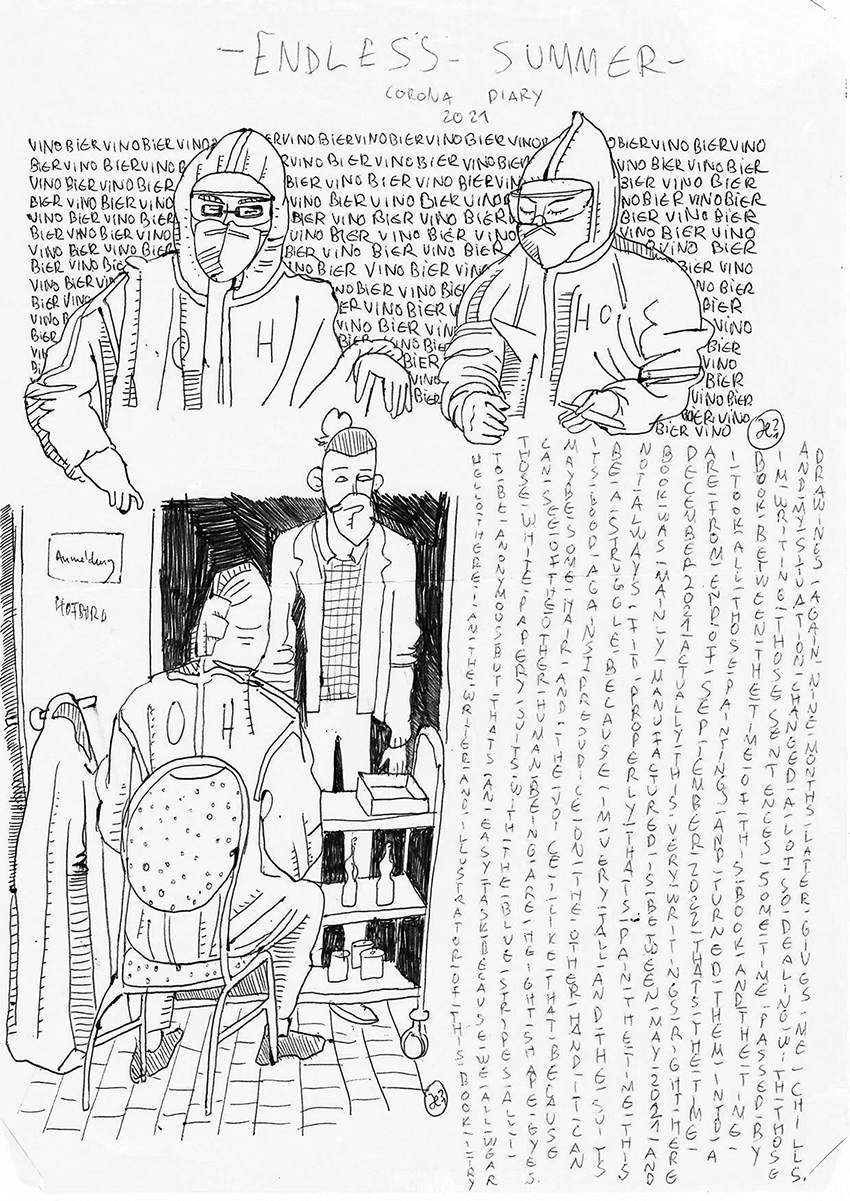 -ENDLESS- SUMMER-
CORONA DIARY
2021
VINO BIER VINO BIER VINO ERVINO BIER VINO BIER VINO BIER VINO BIER VINO BIER VINO
BIER VINO BIER VINO BIER VINO BIER VINO BIER VINO BIER VINO BIER VINO BIER
VINO BIER VINO BIER VINO BIER VINO BIER VINO BIER VINO BIER VINO
BIER VINO BIER VINO BIER VINO BIER VINO BIER VINO BIER VINO BIER
VINO BIER VINO BIER BIER VINO BIER VINO BIER VINO BIER VINO
VINO BIER VINO BIER VINO BIER VINO BIER VINO BIER VINO BIER
BIER VINO BIER VINO BIER VINO BIER VINO BIER VINO
VINO BIER VINO BIER VINO BIER VINO BIER
BIER VINO BIER VINO BIER BIER
VINO BIER VINO BIER VINO
BIER BIER VINO BIER
BIER VINO
BIER
VINO BIER
BIER VINO
BIER VINO
H
HC
Anmeldung
OH
HELLO-THERE-I-AM-THE-WRITER-AND-ILLUSTRATOR-OF-THIS-BOOK-I-TRY
TO-BE-ANONYMOUS-BUT-THATS-AN-EASY-TASK-BECAUSE-WE-ALL-WEAR
THOSE-WHITE-PAPERY-SUITS-WITH-THE-BLUE-STRIPES-ALL-I-
CAN-SEE-OF-THE-OTHER-HUMAN-BEING-ARE-HEIGHT-SHAPE-EYES.
MAYBE-SOME-HAIR-AND-THE-VOICE-I-LIKE-THAT-BECAUSE
ITS-GOOD-AGAINST-PREJUDICE-ON-THE-OTHER-HAND-IT-CAN
BE-A-STRUGGLE-BECAUSE-IM-VERY-TALL-AND-THE-SUITS
NOT-ALWAYS-FID-PROPERLY-THATS-PAIN-THE-TIME-THIS
BOOK-WAS-MAINLY-MANUFACTURED-IS-BETWEEN-MAY-2021-AND
DECEMBER-2021-ACTUALLY-THIS-VERY-WRITINGS-RIGHT-HERE
ARE-FROM-END-OF-SEPTEMBER-2022-THATS-THE-TIME-
I-TOOK-ALL-THOSE-PAINTINGS-AND-TURNED-THEM-INTO-A
BOOK-BETWEEN-THE-TIME-OF-THIS-BOOK-AND-THE-TIME-
IM-WRITING-THOSE-SENTENCES-SOME-TIME-PASSED-BY
AND-MY-SITUATION-CHANGED-A-LOT-SO-DEALING-WITH-THOSE
DRAWINGS-AGAIN-NINE-MONTHS-LATER-GIVES-ME-CHILLS.